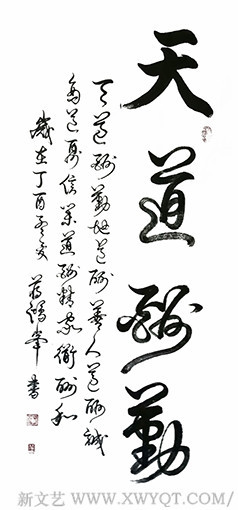 天道酬勤
天道酬勤地道酬善人道酬誠
商道酬信業道酬精家道酬和
歲在丁酉 書
新文艺 WWW.XWYQT.COM/